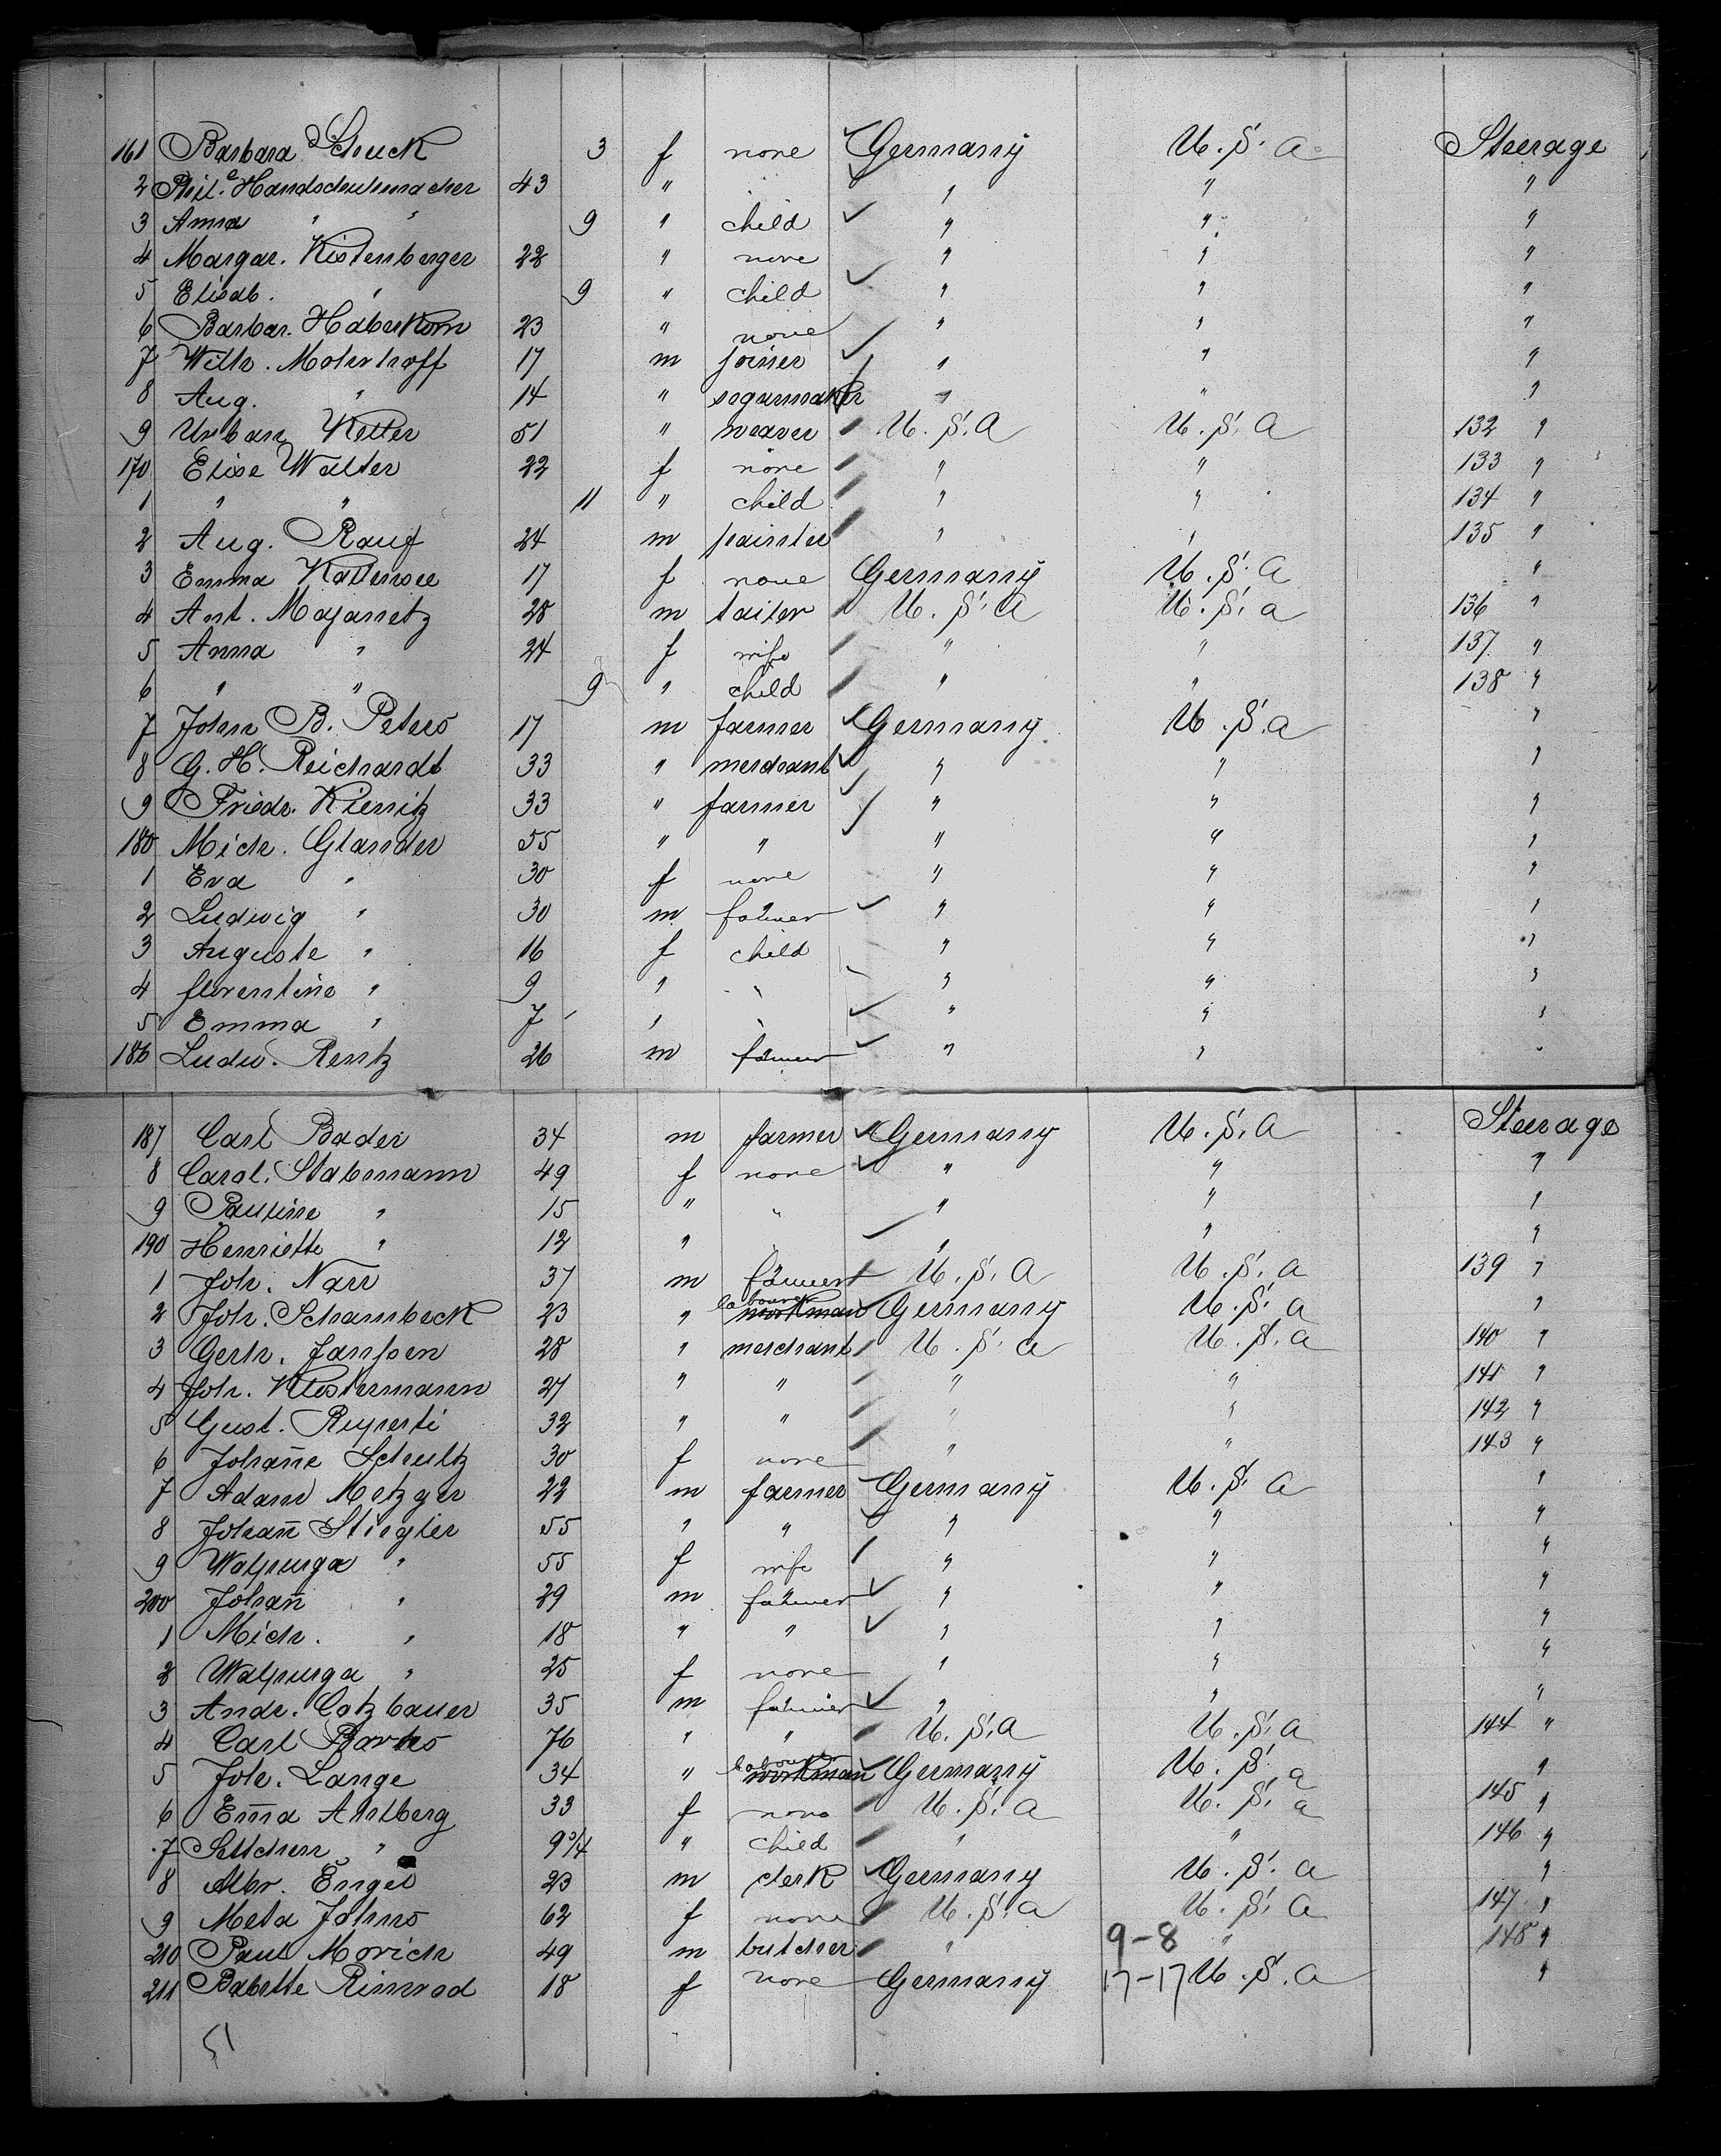 161 Barbara Schuck 3 f none Germany U.S.A Steerage
2 Phil.e Handschuhmacher 43 " " " " "
3 Anna " " 9 " child " " "
4 Margar. Kistenberger 22 " none " " "
5 Elisab. " 9 " child " " "
6 Barbar. Haberkorn 23 " none " " "
7 Wilh. Mohrhoff 17 m joiner " " "
8 Aug. " 14 " segarmaker " " "
9 Urban Keller 51 " weaver U.S.A U.S.A 132 "
170 Elise Walter 22 f none " " 133 "
1 " " 11 " child " " 134 "
2 Aug. Rauf 24 m painter " " 135 "
3 Emma 17 f none Germany U.S.A "
4 Ant. Majanetz 28 m tailor U.S.A U.S.a 136 "
5 Anna " 24 f wife " " 137 "
6 " " 9 " child " " 138 "
7 John B. Peters 17 m farmer Germany U.S.a "
8 G.H. Reichardt 33 " merchant " " "
9 Friedr. Kienitz 33 " farmer " " "
180 Mich. Glander 55 " " " " "
1 Eva " 30 f none " " "
2 Ludwig " 30 m farmer " " "
3 Auguste " 16 f child " " "
4 florentine " 9 " " " " "
5 Emma " 7 " " " " "
186 Ludw. Rentz 26 m farmer " " "
187 Carl Bader 34 m farmer Germany U.S.A Steerage
8 Carol. Stabsmann 49 f none " " "
9 Pauline " 15 " " " " "
190 Henriette " 12 " " " " "
1 Joh. Narr 37 m farmer U.S.A U.S.a 139 "
2 Joh. Schambeck 23 " labourer workman Germany U.S.a "
3 Gerh. Janssen 28 " merchant U.S.a U.S.a 140 "
4 Joh. Klostermann 27 " " " " 141 "
5 Gust. Ruperti 32 " " " " 142 "
6 Johañe Schultz 30 f none " " 143 "
7 Adam Metzger 22 m farmer Germany U.S.a "
8 Johañ Stiegler 55 " " " " "
9 Walpurga " 55 f wife " " "
200 Johañ " 29 m farmer " " "
1 Mich. " 18 " " " " "
2 Walpurga " 25 f none " " "
3 Andr. Cotzbauer 35 m farmer " " "
4 Carl 76 " " U.S.A U.S.a 144 "
5 Joh. Lange 34 " labourer workman Germany U.S.a "
6 Em̄a Ahlberg 33 f none U.S.a U.S.a 145 "
7 " 9 3/4 " child " " 146 "
8 Albr. Engel 23 m clerk Germany U.S.a "
9 Meta Johns 62 f none U.S.a U.S.a 147 "
210 Paul Morich 49 m butcher " 9-8 " 148 "
211 Babette Rimrod 18 f none Germany 17-17 U.S.a "
51